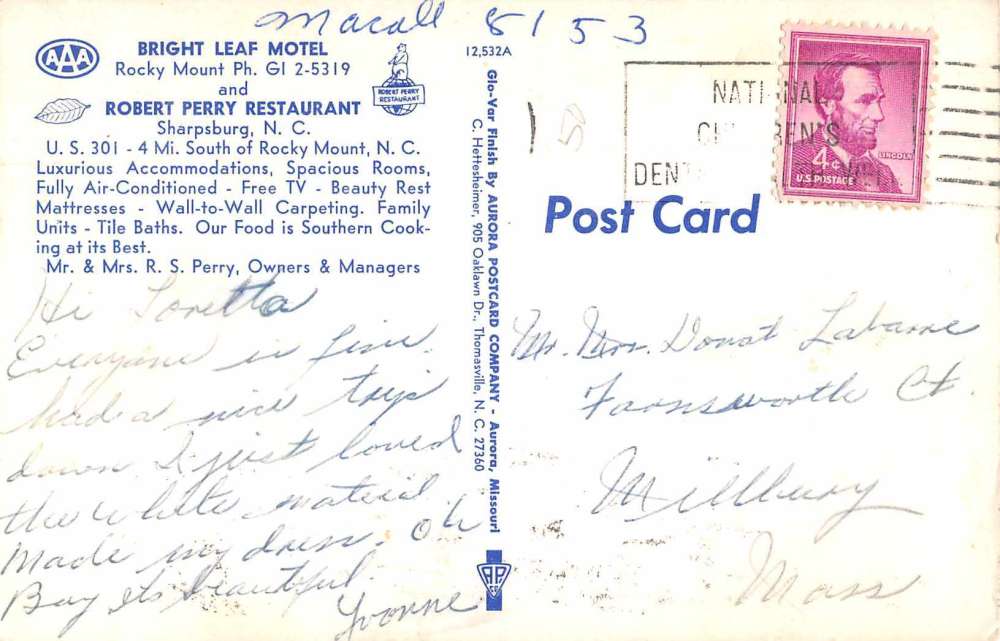 Macall 8153
BRIGHT LEAF MOTEL
Rocky Mount Ph. GI 2-5319
and
ROBERT PERRY RESTAURANT
Sharpsburg, N. C.
U. S. 301 - 4 Mi. South of Rocky Mount, N. C.
Luxurious Accommodations, Spacious Rooms,
Fully Air-Conditioned - Free TV - Beauty Rest
Mattresses - Wall-to-Wall Carpeting. Family
Units - Tile Baths. Our Food is Southern Cook-
ing at its Best.
Mr. & Mrs. R. S. Perry, Owners & Managers
AAA
ROBERT PERRY
RESTAURANT
Hi Loretta
Everyone is fine.
had a nice trip
down I just loved
the white material.
Made my dress. Oh
Boy its beautiful.
Yvonne
12,532A
Glo-Var Finish By AURORA POSTCARD COMPANY - Aurora, Missouri
C. Hettesheimer, 905 Oaklawn Dr., Thomasville, N. C. 27360
A.P. Co
50
NATIONAL
CHILDREN'S
DENT
4¢
LINCOLN
U.S. POSTAGE
Post Card
Mr. Mrs. Donat Labarre
Farnsworth Ct.
Millbury
Mass